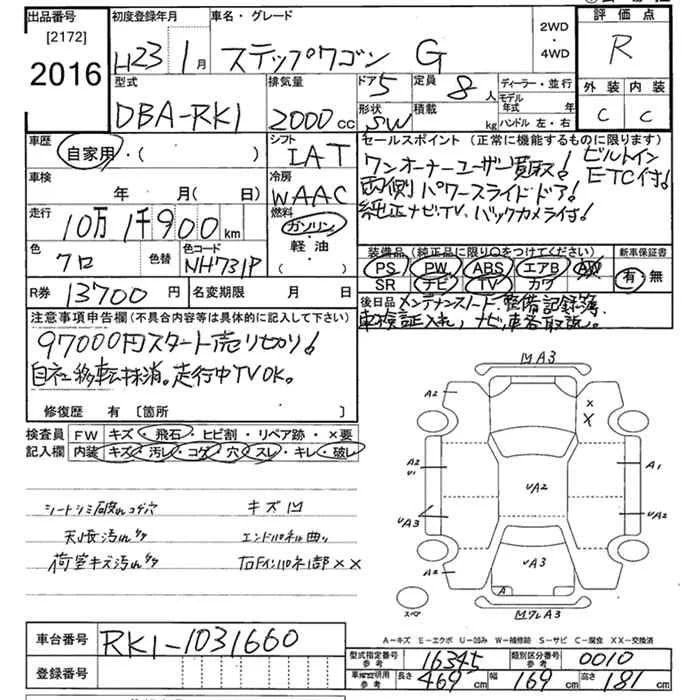 出品番号 初度登録年月 車名・グレード 2WD・4WD 評価点
[2172]
2016 H23 1月 ステップワゴン G R
型式 排気量 ドア 5 定員 8人 ディーラー・並行 外装 内装
DBA-RK1 2000cc 形状 SW 積載 kg モデル年式 年 ハンドル 左・右 C C
車歴 自家用・( ) シフト IAT セールスポイント (正常に機能するものに限ります)
車検 年 月( 日) 冷房 WAAC ワンオーナーユーザー買取! ビルトイン
両側パワースライドドア! ETC付!
走行 10万1千900km 燃料 ガソリン・軽油・( ) 純正ナビ、TV、バックカメラ付!
色 クロ 色替 色コード NH731P 装備品 (純正品に限り〇をつけてください) 新車保証書
PS PW ABS エアB AW 有・無
SR ナビ TV カワ
R券 13700円 名変期限 月 日 後日品 メンテナンスノート、整備記録簿、
注意事項申告欄(不具合内容等は具体的に記入して下さい) 車検証入れ、ナビ、車各取説。
97000円スタート売り切り!
自社移転抹消。走行中TVOK。
修復歴 有 [箇所 ]
検査員 FW キズ・飛石・ヒビ割・リペア跡・×要
記入欄 内装 キズ・汚レ・コゲ・穴・スレ・キレ・破レ
シートシミ破れコゲ穴 キズ凹
天張汚れ エンドパネル曲り
荷室キズ汚れ 右Fインパネ1部××
MA3
A2 × ×
A2 U1 A1
UA2
UA3 UA2
A2 UA3
A
スペア M7LA3
A-キズ E-エクボ U-凹み W-補修跡 S-サビ C-腐食 XX-交換済
車台番号 RK1-1031660 型式指定番号 参考 16345 類別区分番号 参考 0010
登録番号 参考 長さ 469cm 幅 169cm 高さ 181cm